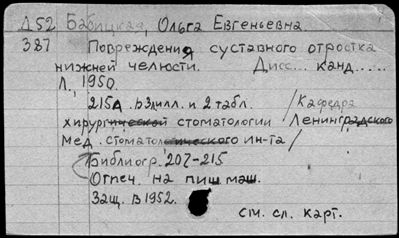 Д52 Бабицкая, Ольга Евгеньевна
387 Повреждения суставного отростка
нижней челюсти. Дисс... канд.....
Л., 1950.
215л. в3илл. и 2 табл. /Кафедра
хирургической стоматологии / Ленинградского
мед. стоматологического ин-та/
Библиогр. 207-215
Отпеч. на пиш маш.
Защ. в 1952.
см. сл. карт.